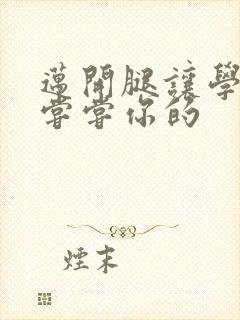 邁開腿讓學
嘗嘗你的
煙末